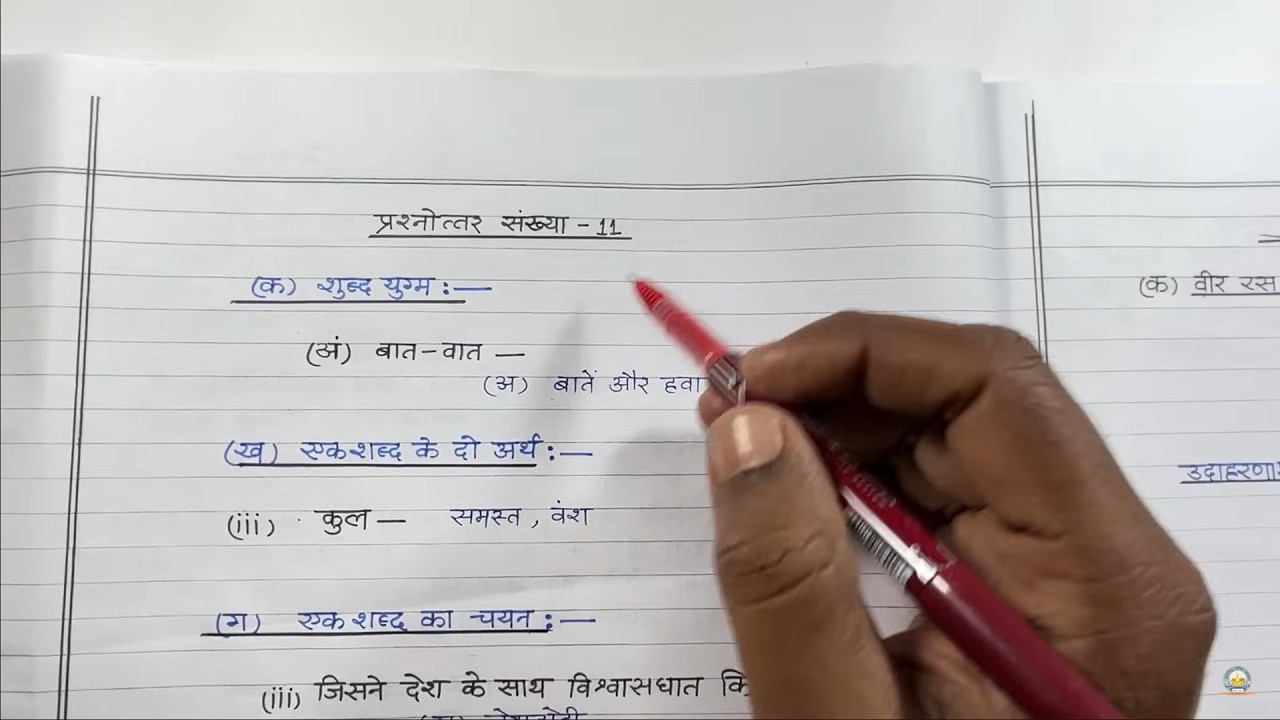 प्रश्नोत्तर संख्या - 11
(क) शब्द युग्म :—
(अं) बात-वात —
(अ) बातें और हवा
(ख) एक शब्द के दो अर्थ :—
(iii) कुल — समस्त , वंश
(ग) एक शब्द का चयन :—
(iii) जिसने देश के साथ विश्वासघात
(क) वीर रस
उदाहरण